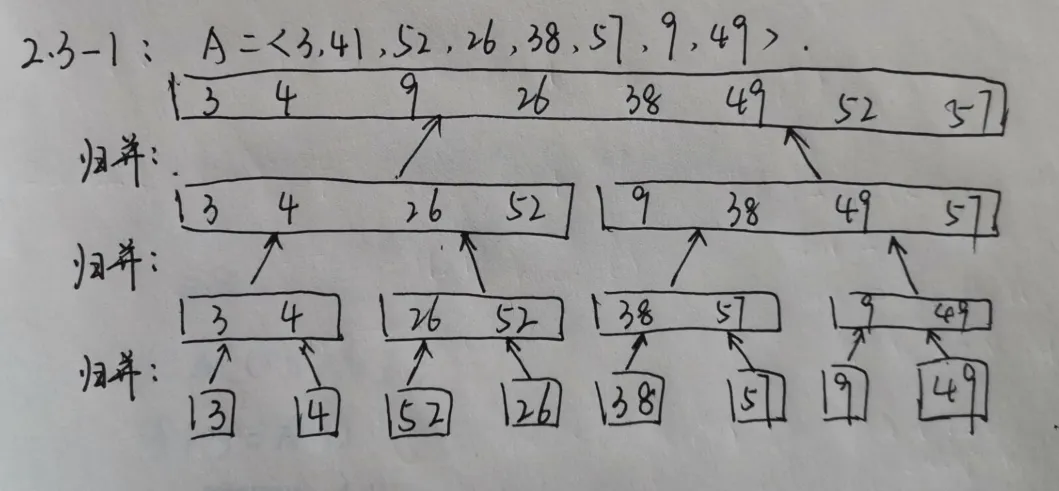 2.3-1: A=<3,41,52,26,38,57,9,49>.
3 4 9 26 38 49 52 57
归并:
3 4 26 52 9 38 49 57
归并:
3 4 26 52 38 57 9 49
归并:
3 4 52 26 38 57 9 49